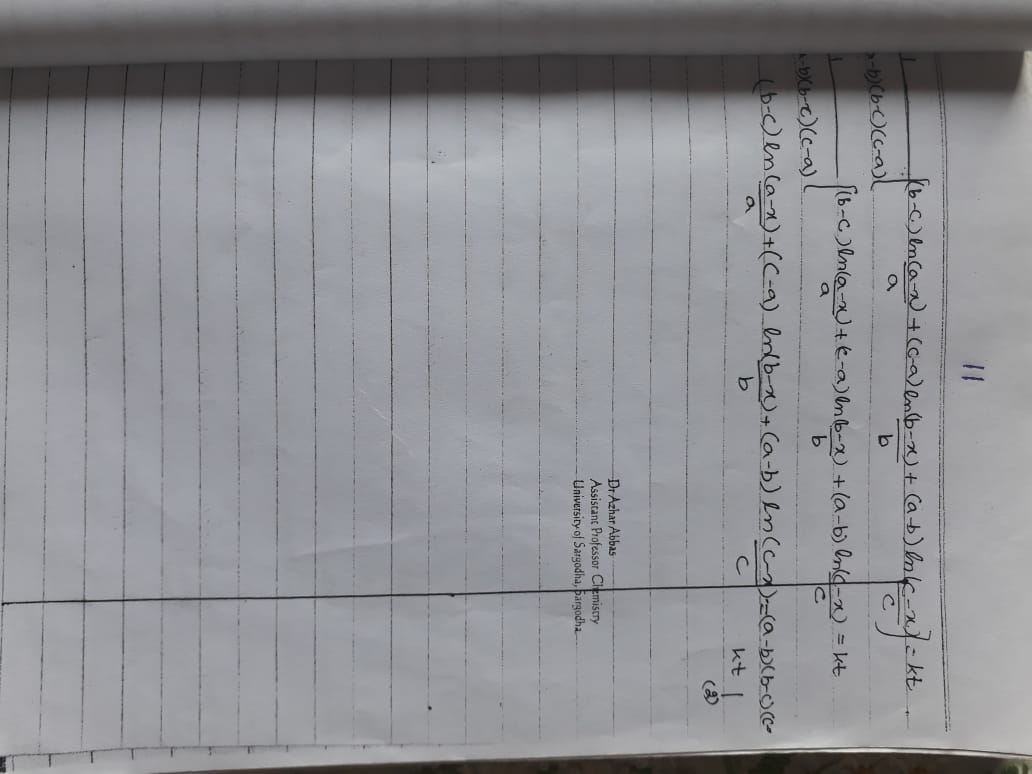 11
1/(-b)(b-c)(c-a) [(b-c) ln(a-x)/a + (c-a) ln(b-x)/b + (a-b) ln(c-x)/c] = kt
1/(-b)(b-c)(c-a) [(b-c) ln(a-x)/a + (c-a) ln(b-x)/b + (a-b) ln(c-x)/c = kt
(b-c) ln(a-x)/a + (c-a) ln(b-x)/b + (a-b) ln(c-x)/c = (a-b)(b-c)(c-
kt
(2)
Dr Azhar Abbas
Assistant Professor Chemistry
University of Sargodha, Sargodha.